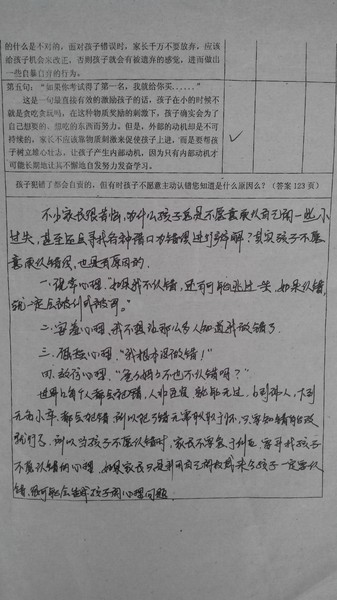 的什么是不对的，面对孩子错误时，家长千万不要放弃，应该
给孩子机会来改正，否则孩子就会有被遗弃的感觉，进而做出
一些自暴自弃的行为。
第五句：“如果你考试得了第一名，我就给你买……”
这是一句最直接有效的激励孩子的话，孩子在小的时候不
就是贪吃贪玩吗，在这种物质奖励的刺激下，孩子确实会为了
自己想要的、想吃的东西而努力。但是，外部的动机却是不可
持续的，家长不应该靠物质刺激来促使孩子上进，而是要帮孩
子树立雄心壮志，让孩子产生内部动机，因为只有内部动机才
可能长期地让其不懈地自发努力发奋学习。
孩子犯错了都会自责的，但有时孩子不愿意主动认错您知道是什么原因么？（答案 123 页）
不少家长很苦恼，为什么孩子总是不愿意承认自己的一些小
过失，甚至还会寻找各种借口为错误进行辩解？其实孩子不愿
意承认错误，也是有原因的。
一.侥幸心理。“如果我不认错，还可能逃过一失，如果认错，
就一定会被训或被骂。”
二.害羞心理，我不想让那么多人知道我做错了.
三.倔强心理，“我根本没做错！”
四.敌对心理，“爸爸妈妈不也不认错吗？”
世界上每个人都会犯错，人非圣贤，孰能无过，上到伟人，下到
无名小卒，都会犯错，所以犯了错无需
就行了，所以当孩子不愿认错时，家长不要急于纠正，
不愿认错的心理，如果家长只是利用自己的权威来令孩子一定要认
错，很可能会造成孩子的心理问题.